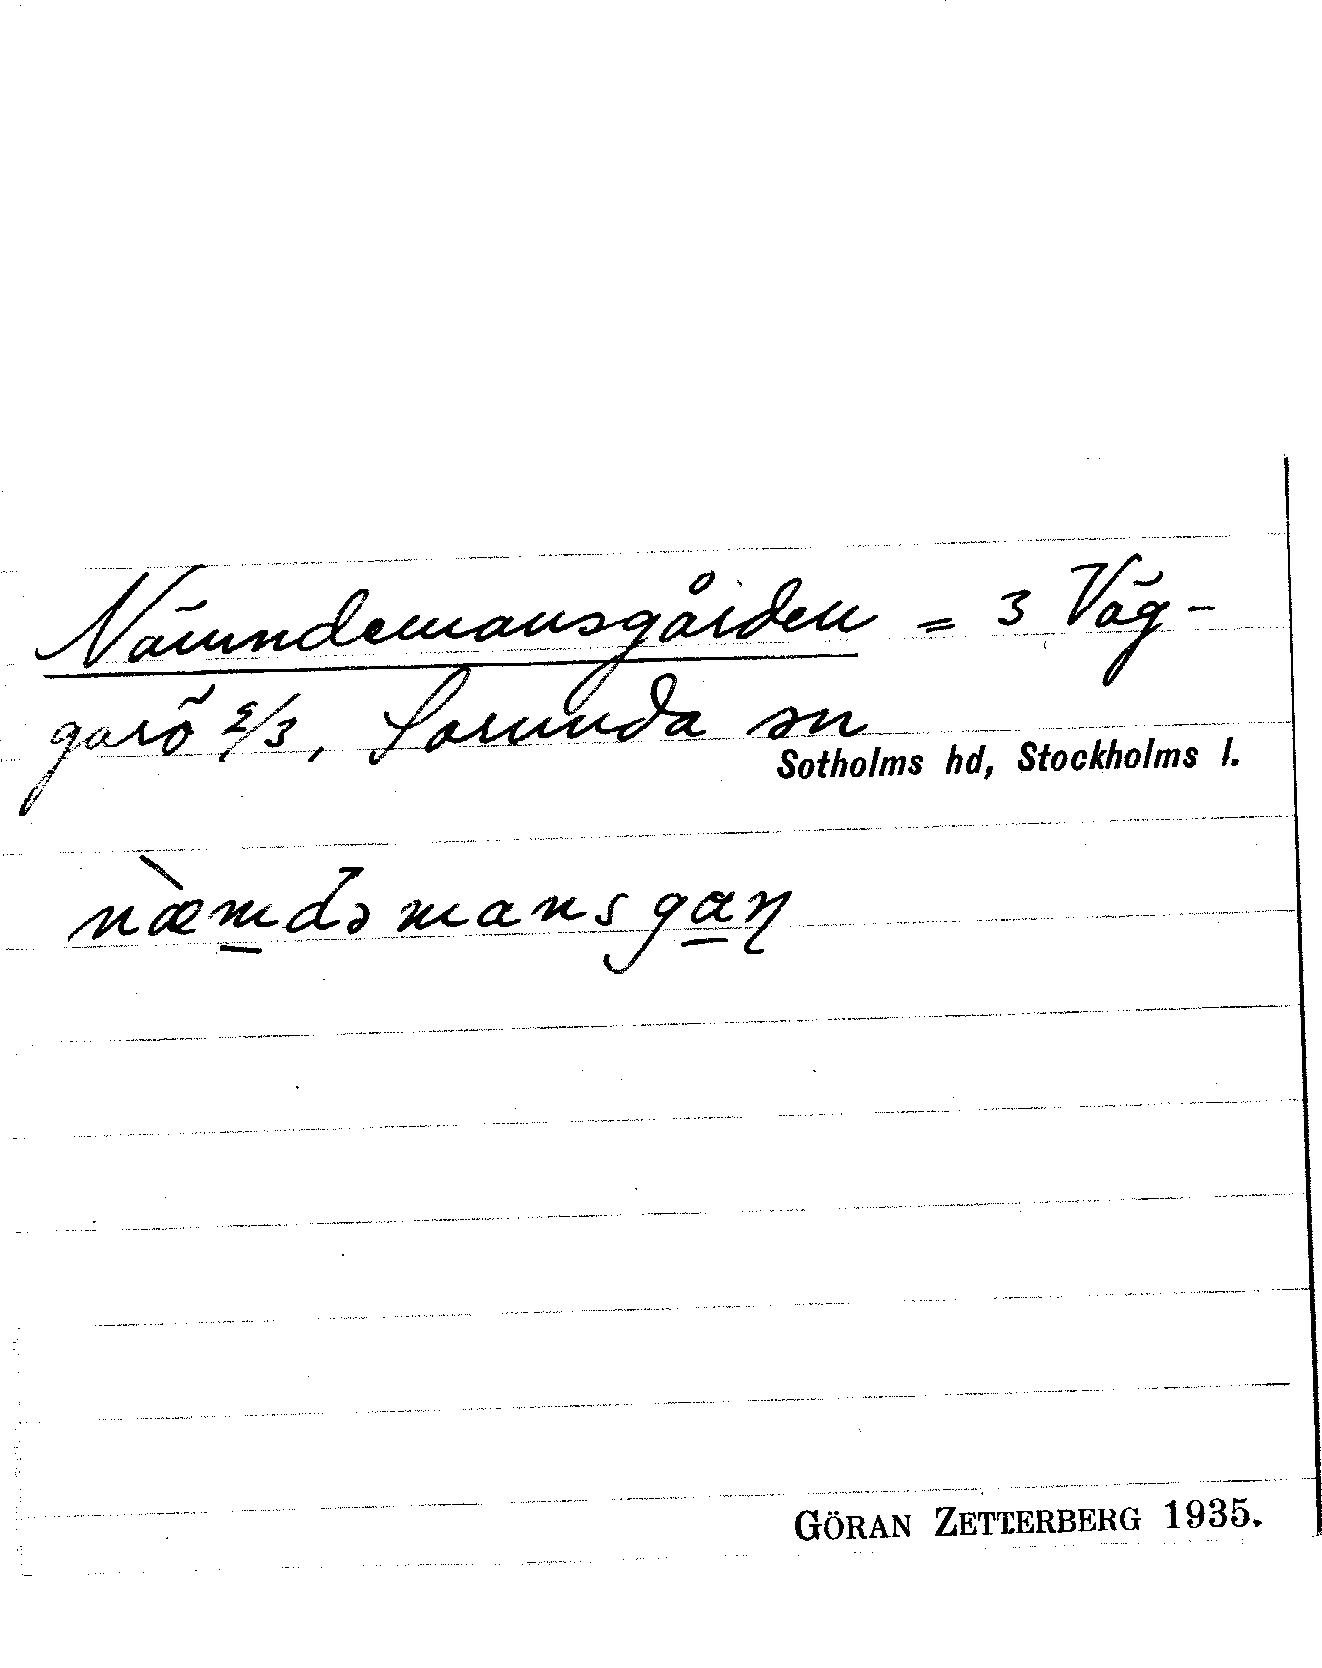 Nämndemansgården = 3 Väg-
garö 2/3, Sorunda sn
Sotholms hd, Stockholms l.
næ̀mdəmansgaɳ
GÖRAN ZETTERBERG 1935.